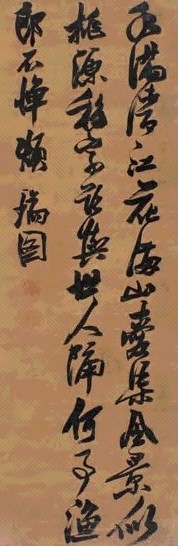 水滿清江花滿山愛渠風景似
桃源移家欲與世人隔何事漁
郎不憚煩 瑞圖